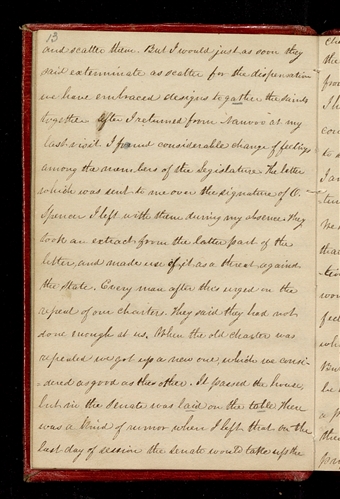 13
and scatter them. But I would just as soon they
said exterminate as scatter for the dispensation
we have embraced designs to gather the saints
together After I returned from Nauvoo at my
last visit I found considerable change of feelings
among the members of the Legislature. The letter
which was sent to me over the signature of O.
Spencer I left with them during my absence. They
took an extract from the latter part of the
letter, and made use of it as a threat against
the State. Every man after this urged on the
repeal of our charter. They said they had not
done enough at us. When the old charter was
repealed we got up a new one, which we consi-
dered as good as the other. It passed the house,
but in the Senate was laid on the table There
was a kind of rumor when I left that on the
last day of session the senate would take up the
the
I h
to
I a
ten
tha
tion
wou
feel
whi
Bu
be
a p
the